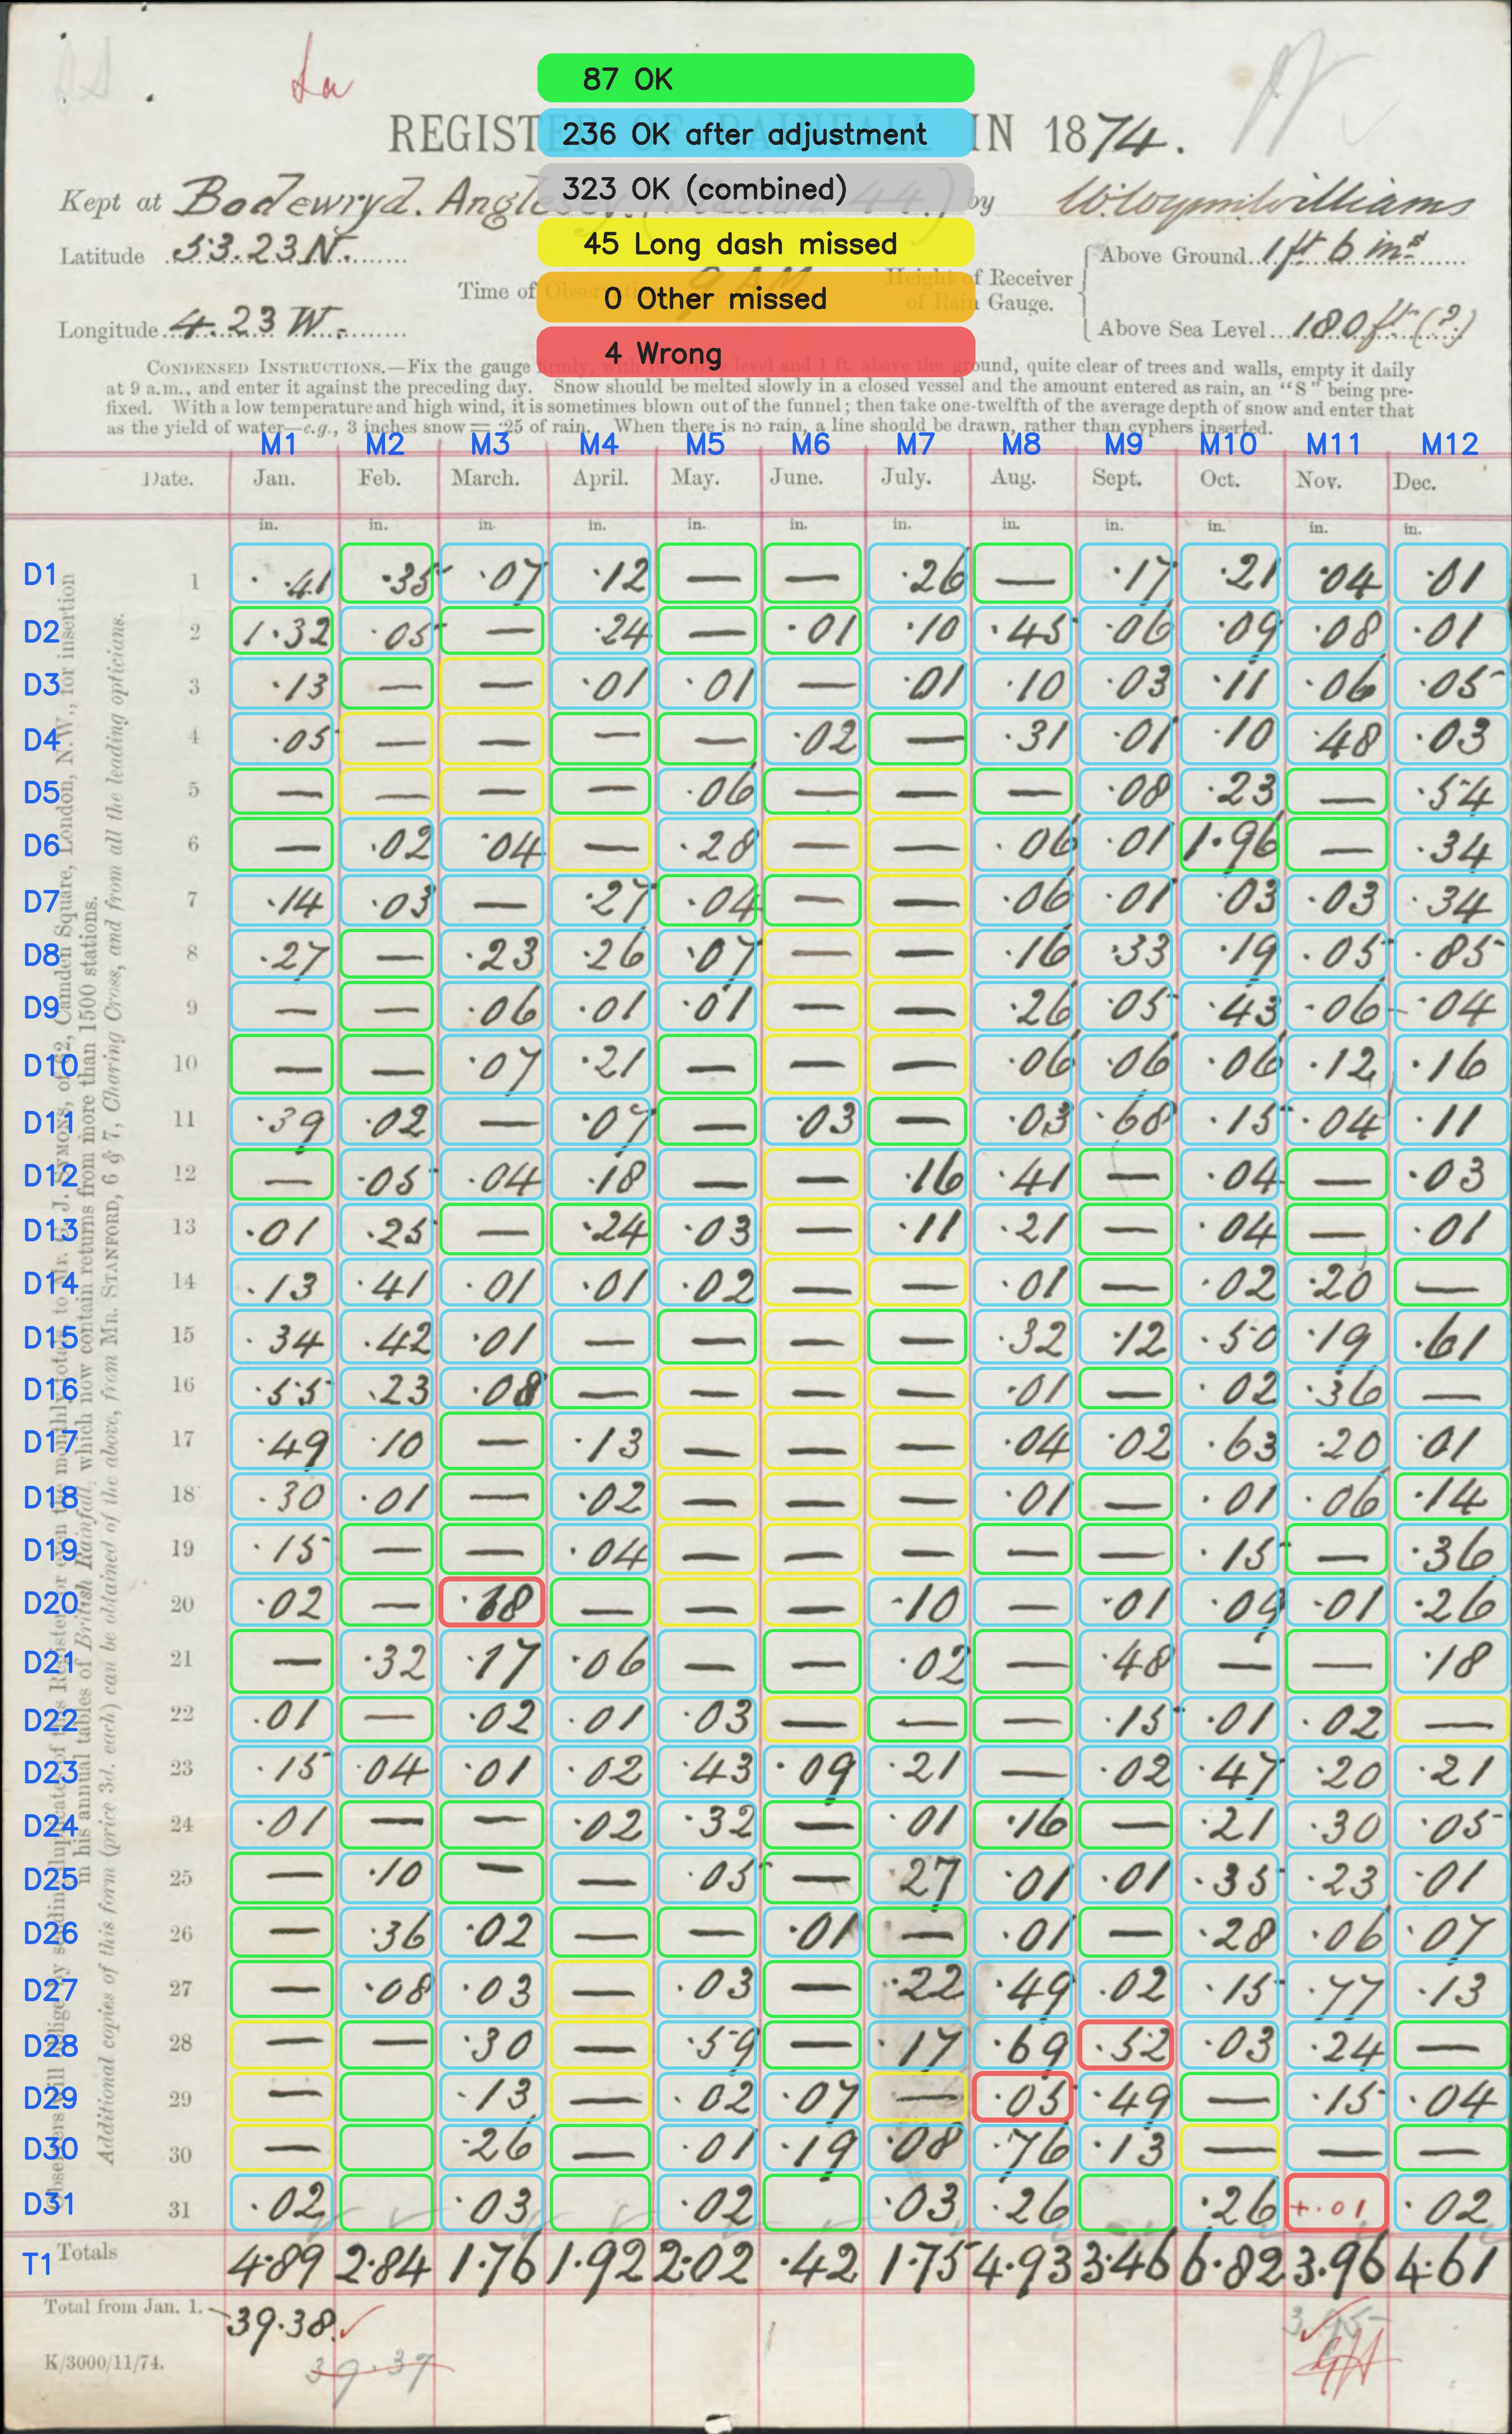 La
87 OK
REGISTER OF RAINFALL IN 1874.
236 OK after adjustment
323 OK (combined)
Kept at Bodewryd. Anglesey. (Station 44) by
Latitude 53.23 N.
45 Long dash missed
Above Ground 1 ft 6 ins
Time of Observation 9 AM
Height of Receiver of Rain Gauge.
0 Other missed
Longitude 4.23 W.
Above Sea Level 180 ft (?)
4 Wrong
CONDENSED INSTRUCTIONS.—Fix the gauge firmly, with its mouth level and 1 ft. above the ground, quite clear of trees and walls, empty it daily
at 9 a.m., and enter it against the preceding day. Snow should be melted slowly in a closed vessel and the amount entered as rain, an "S" being pre-
fixed. With a low temperature and high wind, it is sometimes blown out of the funnel; then take one-twelfth of the average depth of snow and enter that
as the yield of water—e.g., 3 inches snow = ·25 of rain. When there is no rain, a line should be drawn, rather than cyphers inserted.
M1 M2 M3 M4 M5 M6 M7 M8 M9 M10 M11 M12
Date. Jan. Feb. March. April. May. June. July. Aug. Sept. Oct. Nov. Dec.
in. in. in. in. in. in. in. in. in. in. in. in.
D1 1 ·41 ·35 ·07 ·12 — — ·26 — ·17 ·21 ·04 ·01
D2 2 1·32 ·05 — ·24 — ·01 ·10 ·45 ·06 ·09 ·08 ·01
D3 3 ·13 — — ·01 ·01 — ·01 ·10 ·03 ·11 ·06 ·05
D4 4 ·05 — — — — ·02 — ·31 ·01 ·10 ·48 ·03
D5 5 — — — — ·06 — — — ·08 ·23 — ·54
D6 6 — ·02 ·04 — ·28 — — ·06 ·01 1·96 — ·34
D7 7 ·14 ·03 — ·27 ·04 — — ·06 ·01 ·03 ·03 ·34
D8 8 ·27 — ·23 ·26 ·07 — — ·16 ·33 ·19 ·05 ·85
D9 9 — — ·06 ·01 ·01 — — ·26 ·05 ·43 ·06 ·04
D10 10 — — ·07 ·21 — — — ·06 ·06 ·06 ·12 ·16
D11 11 ·39 ·02 — ·07 — ·03 — ·03 ·68 ·15 ·04 ·11
D12 12 — ·05 ·04 ·18 — — ·16 ·41 — ·04 — ·03
D13 13 ·01 ·25 — ·24 ·03 — ·11 ·21 — ·04 — ·01
D14 14 ·13 ·41 ·01 ·01 ·02 — — ·01 — ·02 ·20 —
D15 15 ·34 ·42 ·01 — — — — ·32 ·12 ·50 ·19 ·61
D16 16 ·55 ·23 ·08 — — — — ·01 — ·02 ·36 —
D17 17 ·49 ·10 — ·13 — — — ·04 ·02 ·63 ·20 ·01
D18 18 ·30 ·01 — ·02 — — — ·01 — ·01 ·06 ·14
D19 19 ·15 — — ·04 — — — — — ·15 — ·36
D20 20 ·02 — ·18 — — — ·10 — ·01 ·09 ·01 ·26
D21 21 — ·32 ·17 ·06 — — ·02 — ·48 — — ·18
D22 22 ·01 — ·02 ·01 ·03 — — — ·15 ·01 ·02 —
D23 23 ·15 ·04 ·01 ·02 ·43 ·09 ·21 — ·02 ·47 ·20 ·21
D24 24 ·01 — — ·02 ·32 — ·01 ·16 — ·21 ·30 ·05
D25 25 — ·10 — — ·05 — ·27 ·01 ·01 ·35 ·23 ·01
D26 26 — ·36 ·02 — — ·01 — ·01 — ·28 ·06 ·07
D27 27 — ·08 ·03 — ·03 — ·22 ·49 ·02 ·15 ·77 ·13
D28 28 — — ·30 — ·59 — ·17 ·69 ·52 ·03 ·24 —
D29 29 — ·13 — ·02 ·07 — ·05 ·49 — ·15 ·04
D30 30 — ·26 — ·01 ·19 ·08 ·76 ·13 — — —
D31 31 ·02 ·03 ·02 ·03 ·26 ·26 +·01 ·02
T1 Totals 4·89 2·84 1·76 1·92 2·02 ·42 1·75 4·93 3·46 6·82 3·96 4·61
Total from Jan. 1. 39·38
3.95
K/3000/11/74.
39·37
Observers will oblige by sending duplicates of this Register, or even the monthly totals, to Mr. G. J. SYMONS, of 62, Camden Square, London, N.W., for insertion
in his annual tables of British Rainfall, which now contain returns from more than 1500 stations.
Additional copies of this form (price 3d. each) can be obtained of the above, from MR. STANFORD, 6 & 7, Charing Cross, and from all the leading opticians.